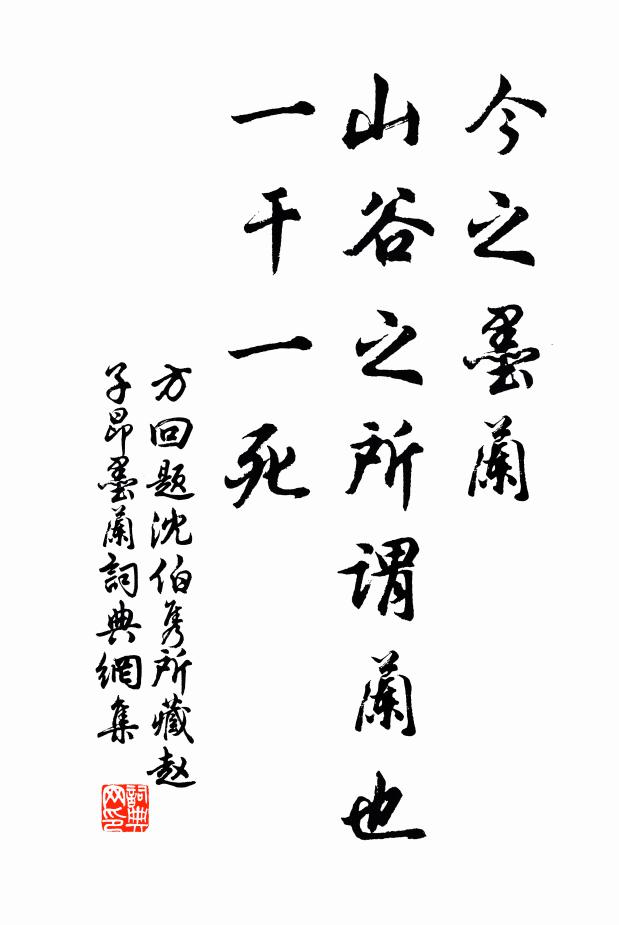 今之墨蘭
山谷之所謂蘭也
一干一死
方回題沈伯隽所藏赵
子昂墨蘭詞典網集
詞典网印